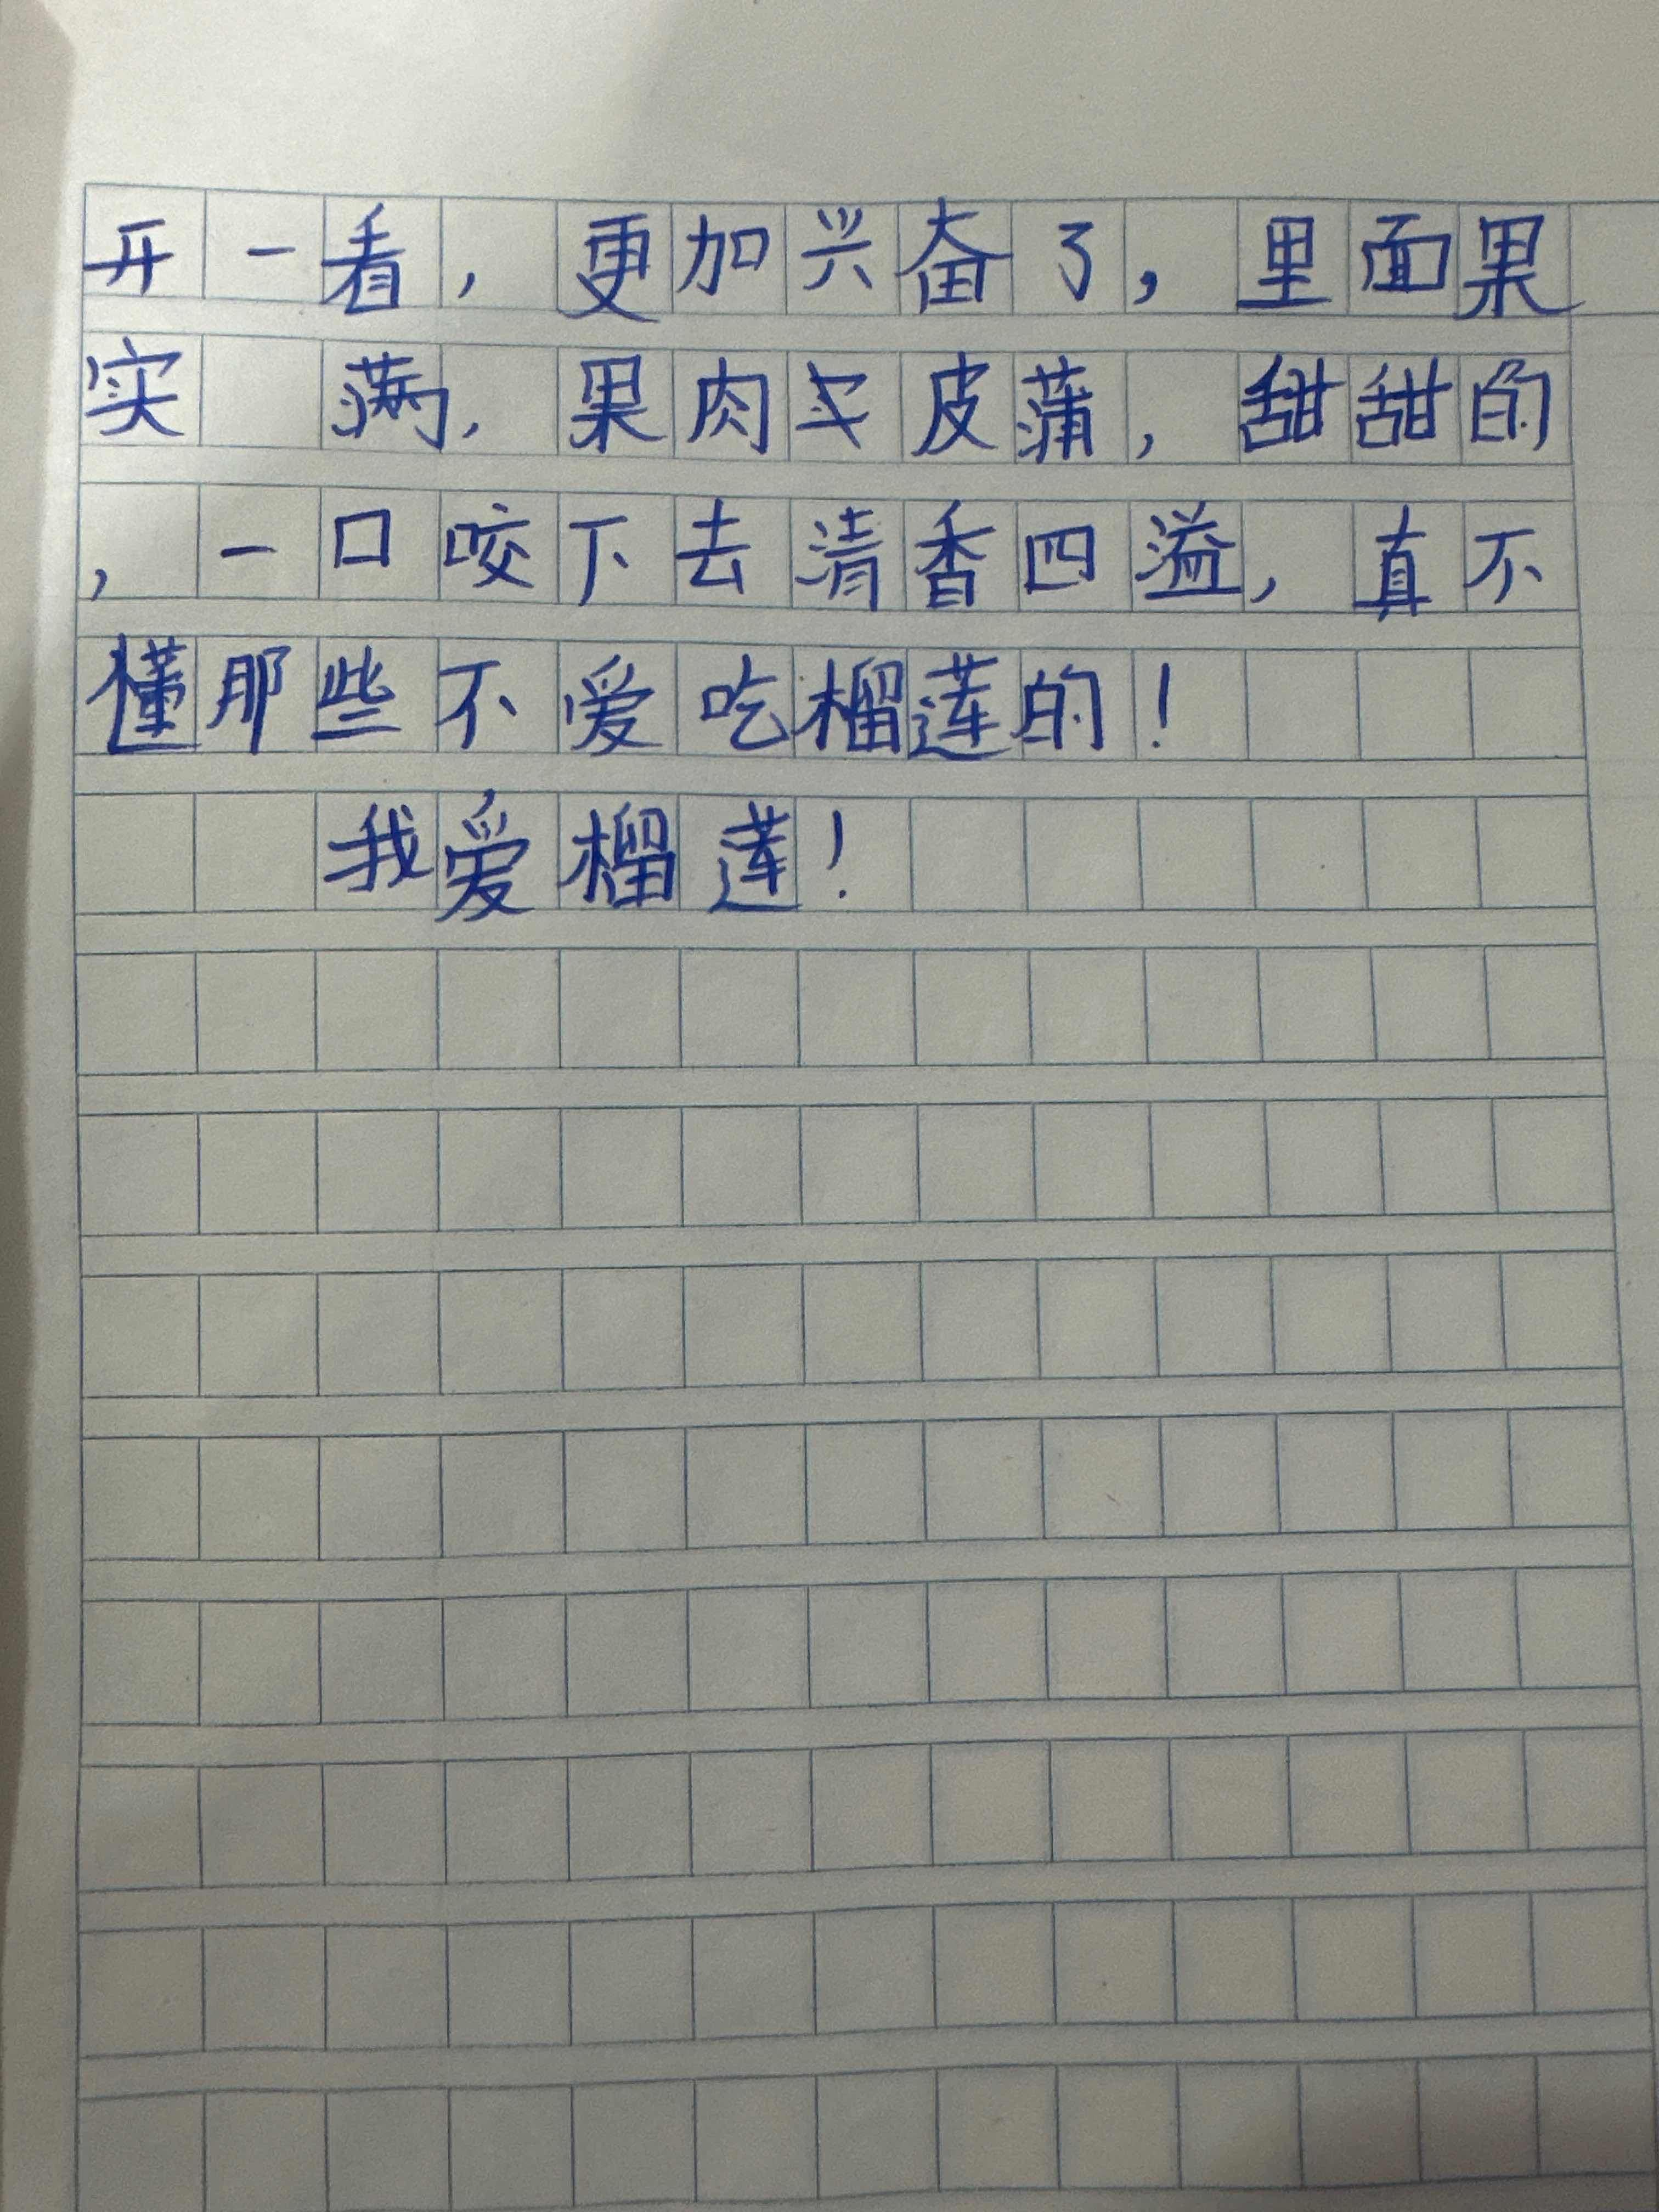 开一看，更加兴奋了，里面果
实 满，果肉 皮蒲，甜甜的
，一口咬下去清香四溢，真不
懂那些不爱吃榴莲的！
我爱榴莲！